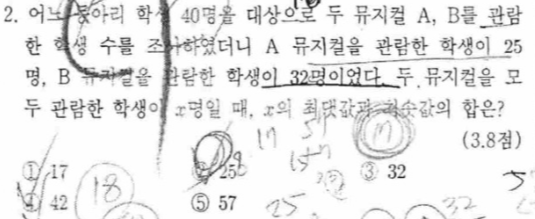 2. 어느 동아리 학생 40명을 대상으로 두 뮤지컬 A, B를 관람
한 학생 수를 조사하였더니 A 뮤지컬을 관람한 학생이 25
명, B 뮤지컬을 관람한 학생이 32명이었다. 두 뮤지컬을 모
두 관람한 학생이 x명일 때, x의 최댓값과 최솟값의 합은?
(3.8점)
17 57 17
① 17 ② 25 ③ 32
④ 42 18 ⑤ 57 25 32